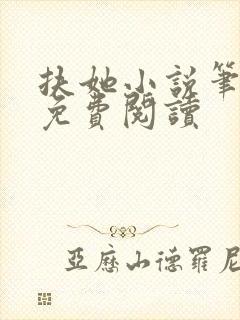 扶她小说筆
免費閱讀
亞歷山德羅尼